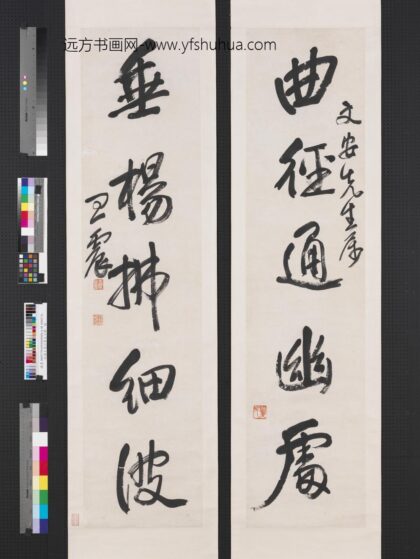 远方书画网-www.yfshuhua.com
曲徑通幽處
文安先生屬
垂楊拂細波
王震